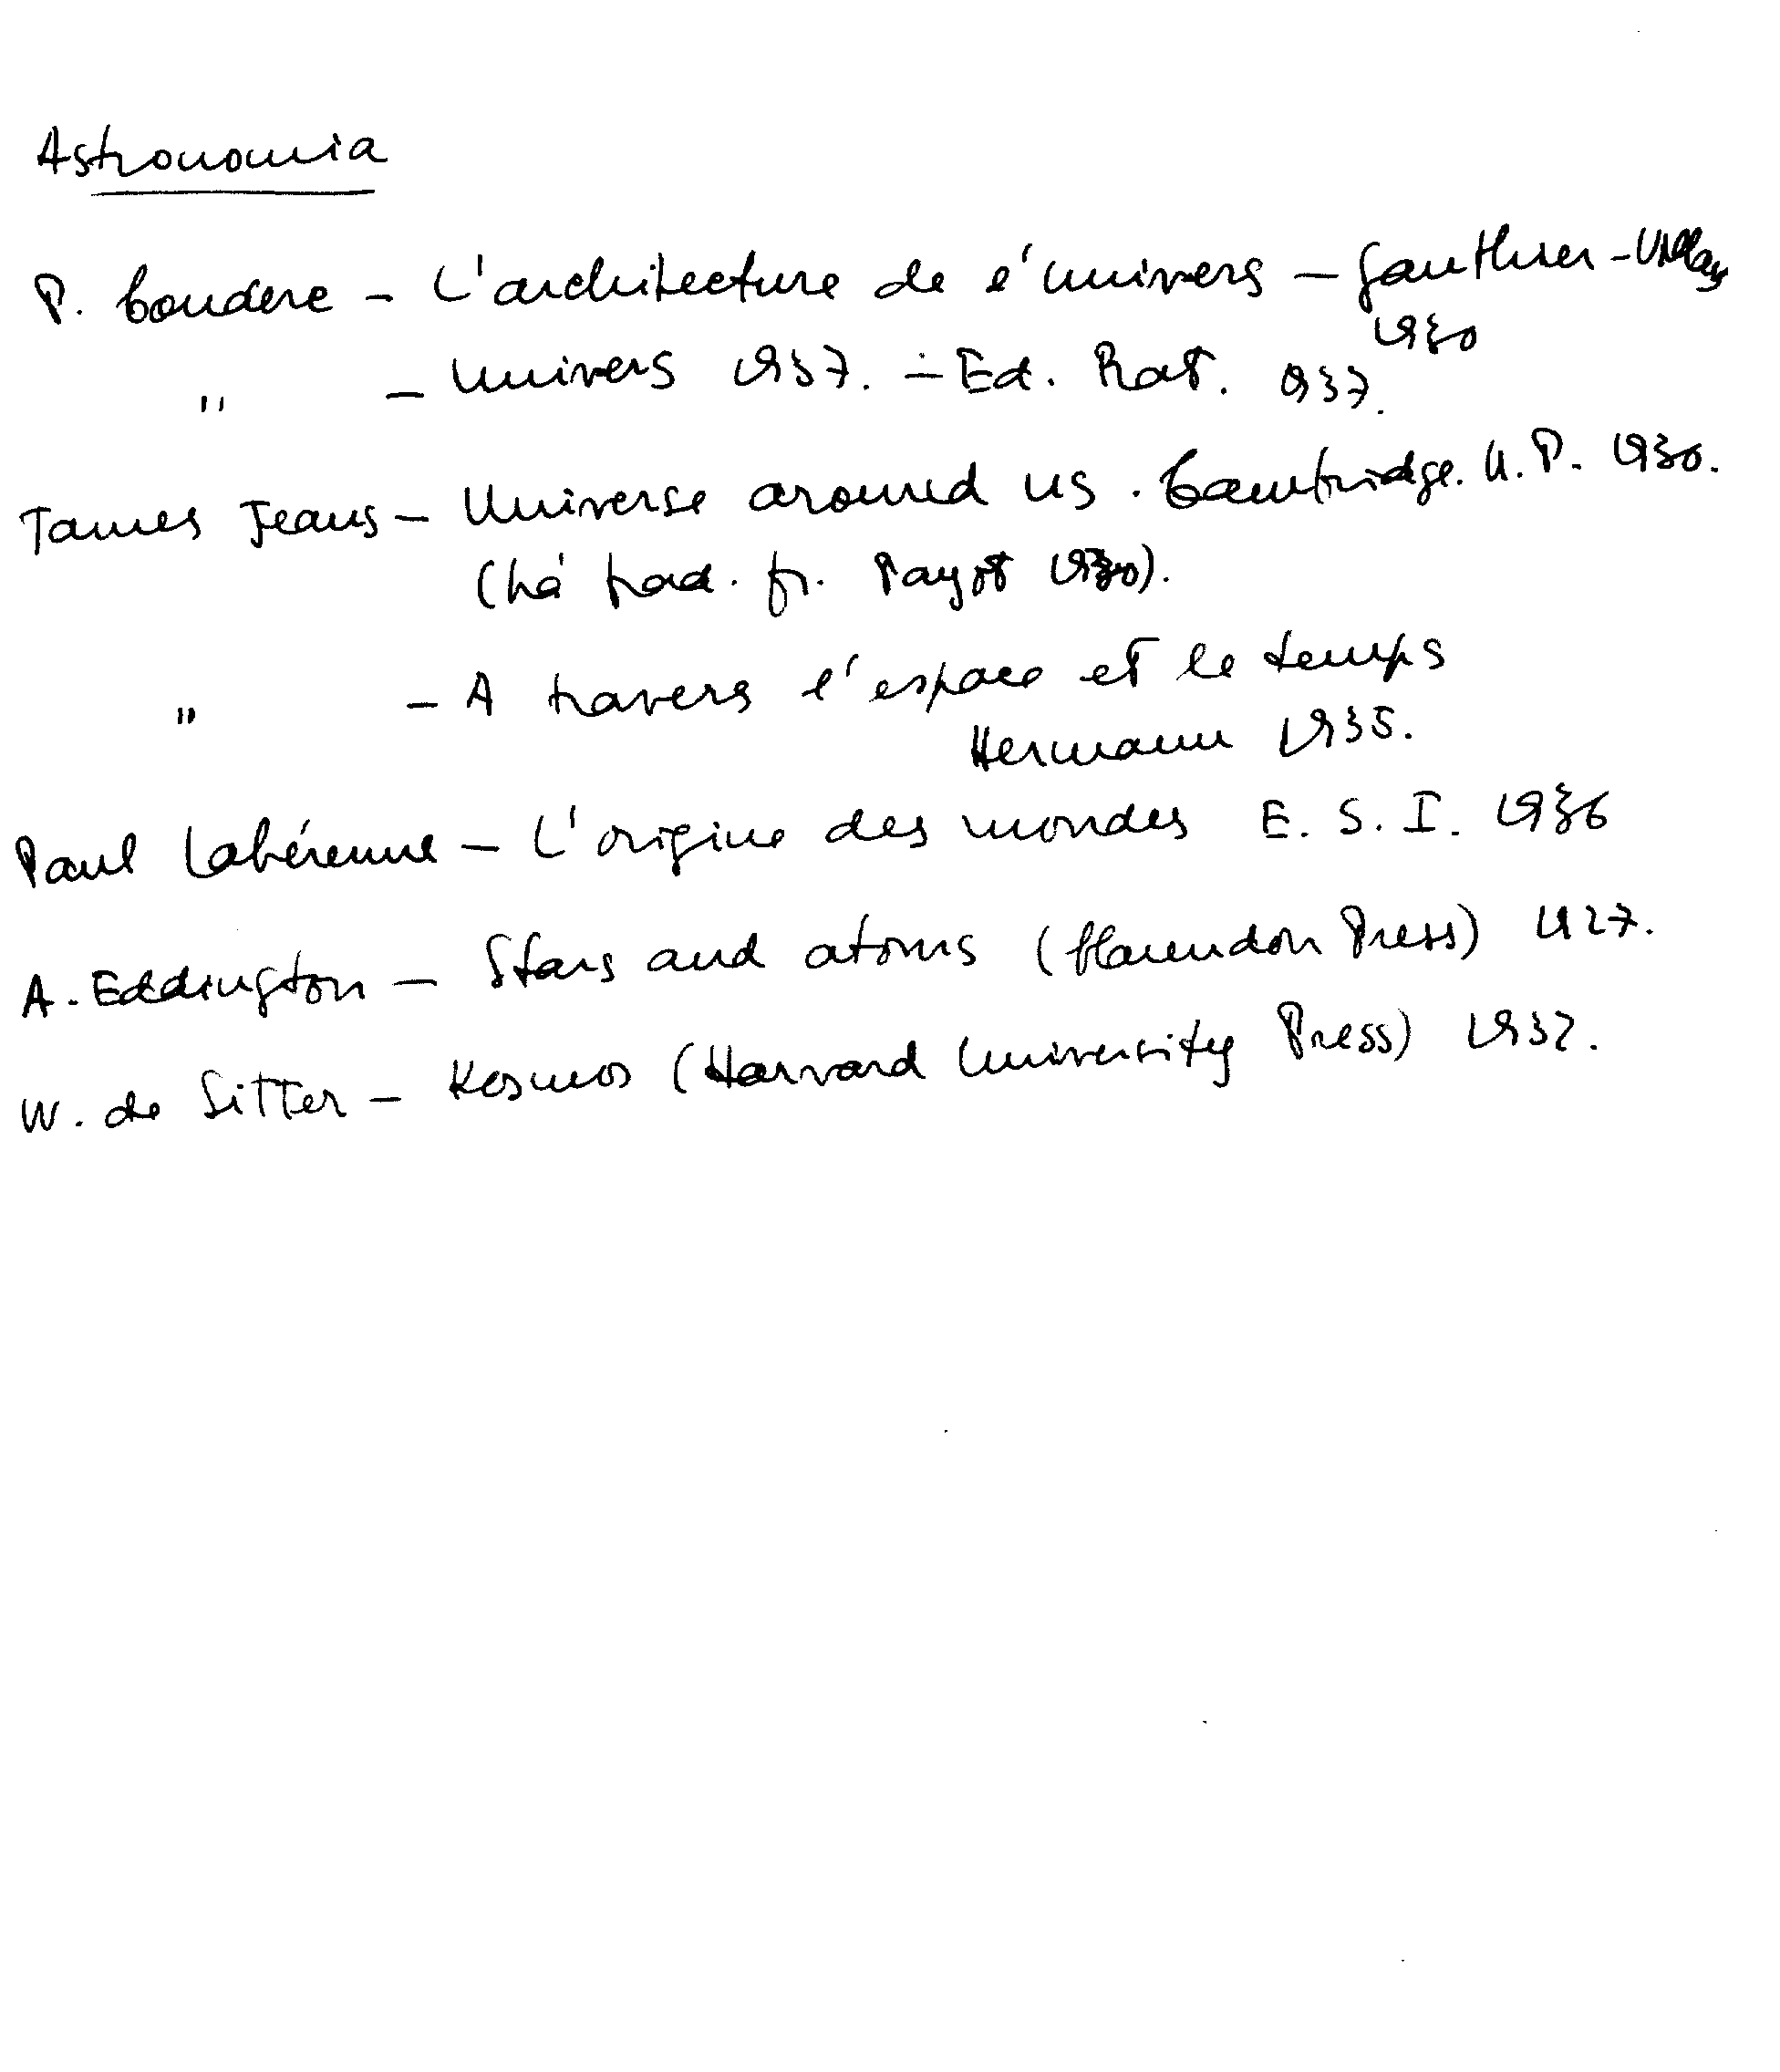 Astronomia
P. Couderc - L'architecture de l'univers - Gauthier-Villars
1930
" - Univers 1937. - Ed. Rat. 937.
James Jeans - Universe around us. Cambridge. U. P. 1930.
(há trad. fr. Payot 1930).
" - A travers l'espace et le temps
Hermann 1935.
Paul Labérenne - L'origine des mondes E. S. I. 1936
A. Eddington - Stars and atoms (Clarendon Press) 1927.
W. de Sitter - Kosmos (Harvard University Press) 1932.